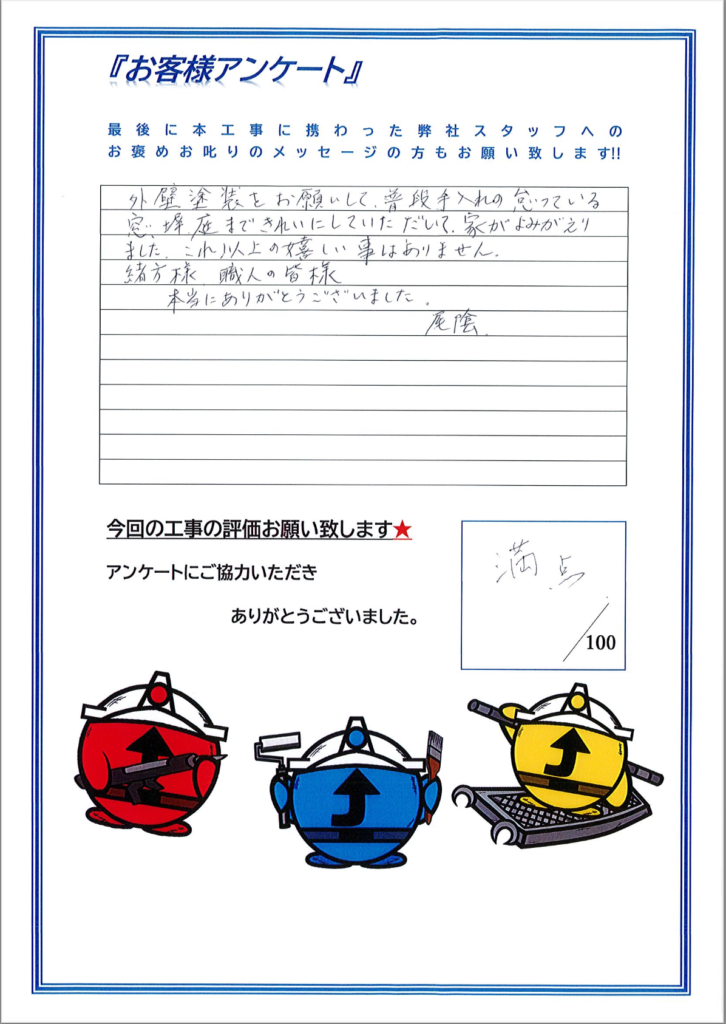 『お客様アンケート』
最後に本工事に携わった弊社スタッフへの
お褒めお叱りのメッセージの方もお願い致します!!
外壁塗装をお願いして、普段手入れの怠っている
窓、塀、庭まできれいにしていただいて、家がよみがえり
ました。これ以上の嬉しい事はありません。
緒方様、職人の皆様
本当にありがとうございました。
尾陰
今回の工事の評価お願い致します★
アンケートにご協力いただき
ありがとうございました。
満点
/100